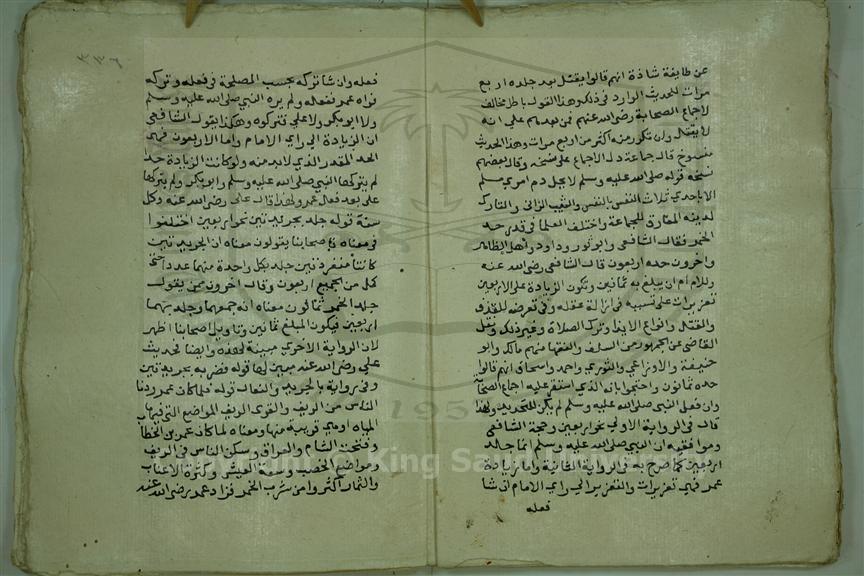 عن طايفة شاذة انهم قالوا يقتل بعد جلده اربع
مرات للحديث الوارد في ذلك وهذا القول باطل مخالف
لاجماع الصحابة رضي الله عنهم فمن بعدهم على انه
لا يقتل وان تكرر منه اكثر من اربع مرات وهذا الحديث
منسوخ قال جماعة دل الاجماع على نسخه وقال بعضهم
نسخه قوله صلى الله عليه وسلم لا يحل دم امري مسلم
الا باحدي ثلاث النفس بالنفس والثيب الزاني والتارك
لدينه المفارق للجماعة واختلف العلما في قدر حد
الخمر فقال الشافعي وابو ثور وداود واهل الظاهر
واخرون حده اربعون قال الشافعي رضي الله عنه
وللامام ان يبلغ به ثمانين وتكون الزيادة على الاربعين
تعزيرات على تسببه في ازالة عقله وفي تعرضه للقذف
والقتل وانواع الايذا وترك الصلاة وغير ذلك ونقل
القاضي عن الجمهور من السلف والفقها منهم مالك وابو
حنيفة والاوزاعي والثوري واحمد واسحاق انهم قالوا
حده ثمانون واحتجوا بانه الذي استقر عليه اجماع الصحابة
وان فعل النبي صلى الله عليه وسلم لم يكن للتحديد ولهذا
قال في الرواية الاولي نحو اربعين وحجة الشافعي
وموافقيه ان النبي صلى الله عليه وسلم انما جلد
اربعين كما صرح به في الرواية الثانية واما زيادة
عمر فهي تعزيرات والتعزير الي راي الامام ان شا
فعله
٣٣٦
فعله وان شا تركه بحسب المصلحة في فعله وتركه
فراه عمر ففعله ولم يره النبي صلى الله عليه وسلم
ولا ابو بكر ولا علي فتركوه وهكذا يقول الشافعي
ان الزيادة الي راي الامام واما الاربعون فهي
الحد المقدر الذي لا بد منه ولو كانت الزيادة حدا
لم يتركها النبي صلى الله عليه وسلم وابو بكر ولم يتركها
علي بعد فعل عمر ولهذا قال علي رضي الله عنه وكل
سنة قوله جلد بجريدتين نحو اربعين اختلفوا
في معناه فاصحابنا يقولون معناه ان الجريدتين
كانتا منفردتين جلد بكل واحدة منهما عددا حتى
كمل من الجميع اربعون وقال اخرون ممن يقول
جلد الخمر ثمانون معناه انه جمعهما وجلد بهما
اربعين فيكون المبلغ ثمانين وتاويل اصحابنا اظهر
لان الرواية الاخري مبينة لهذه وايضا فحديث
علي رضي الله عنه مبين لها قوله فضربه بجريدتين
وفي رواية بالجريد والنعال قوله فلما كان عمر ودنا
الناس من الريف والقري الريف المواضع التي فيها
المياه او هي قريبة منها ومعناه لما كان عمر بن الخطاب
وفتحت الشام والعراق وسكن الناس في الريف
ومواضع الخصب وسعة العيش وكثرة الاعناب
والثمار اكثروا من شرب الخمر فزاد عمر رضي الله عنه
1957
Copyright © King Saud University